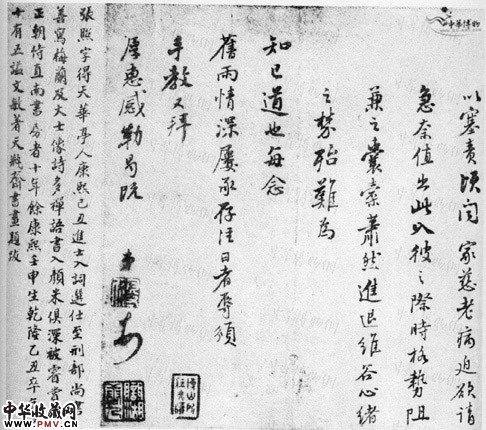 中華博物
以塞責頃聞 家慈老病迫欲請
急奈值出此入彼之際時格勢阻
兼之囊橐蕭然進退維谷心緒
之棼殆難為
知己道也每念
舊雨情深屢承存注日者辱頒
手教又拜
厚惠感勒曷既
弟
張照字得天華亭人康熙己丑進士入詞選仕至刑部尚書
善寫梅蘭及大士像詩多禪語書入顏米俱深被睿賞
正朝侍直南書房者十年餘康熙壬申生乾隆乙丑卒年
十有五謚文敏著天瓶齋書畫題跋
中华收藏网
www.PMV.cn